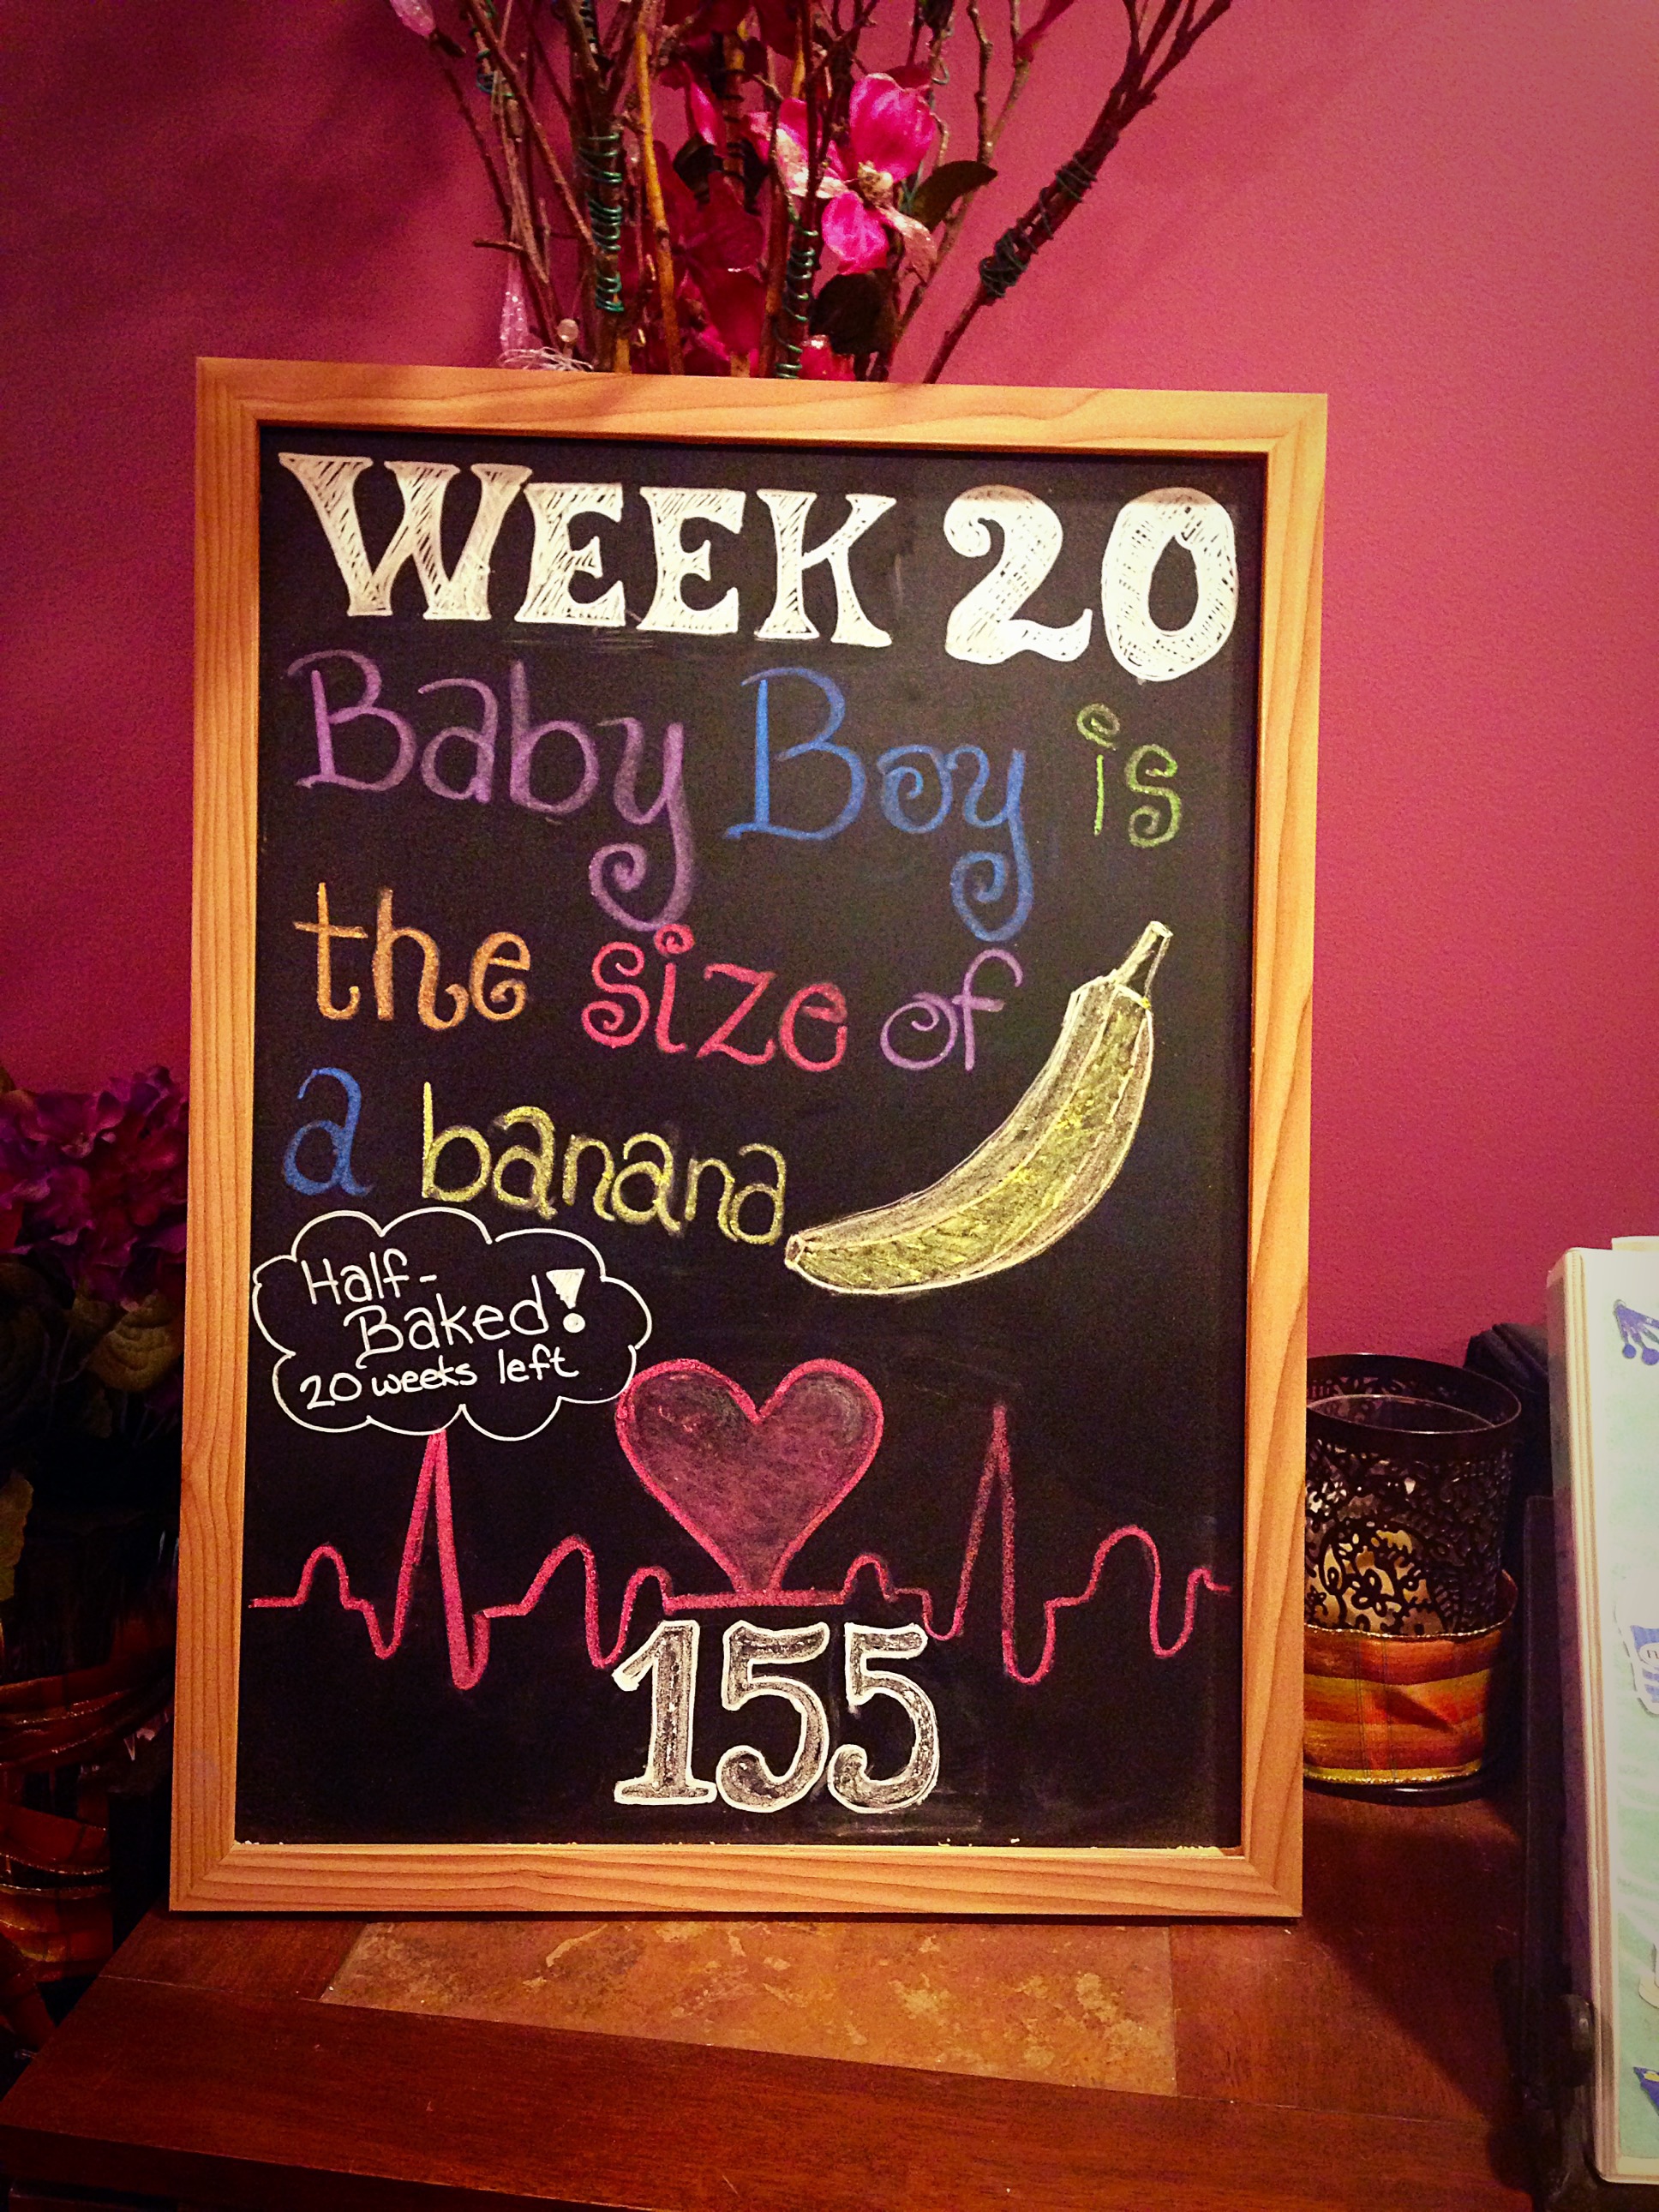 WEEK 20
Baby Boy is
the size of
a banana
Half-
Baked!
20 weeks left
155